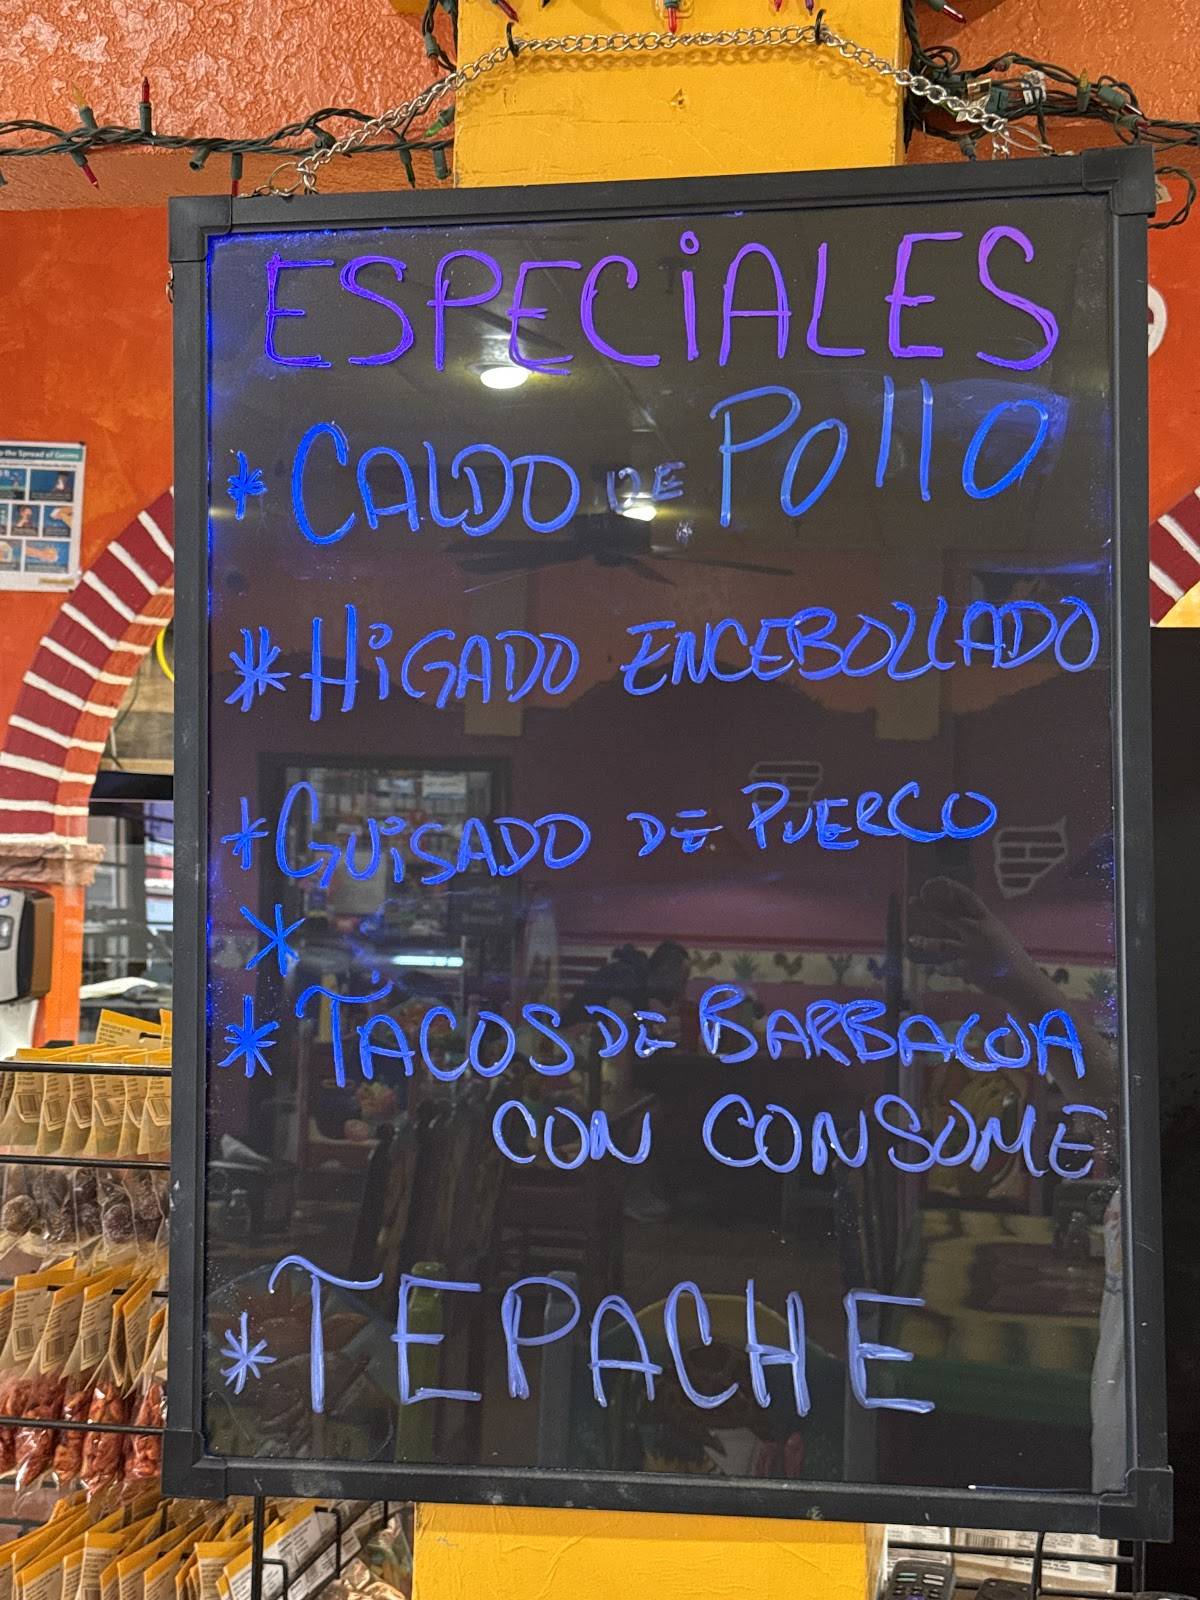 ESPECiALES
* CALDO DE POllO
* HiGADO ENCEBOLLADO
* GUiSADO DE PUERCO
*
* TACOS DE BARBACOA
CON CONSOME
* TEPACHE
p the Spread of Germs